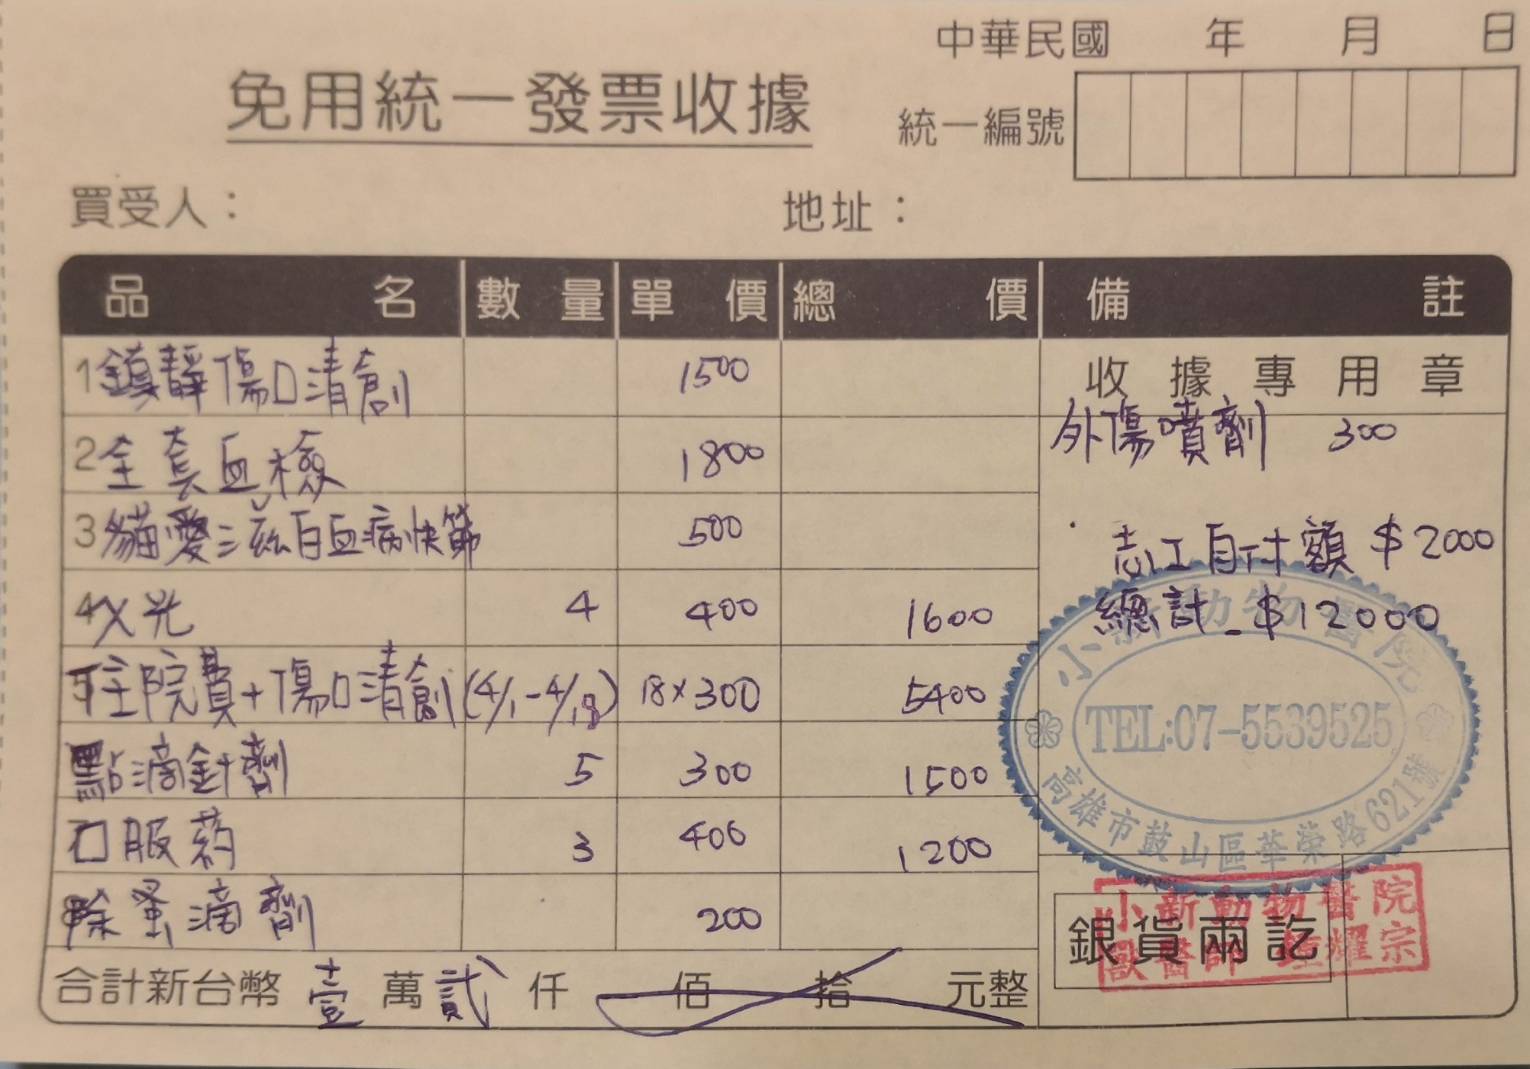 中華民國 年 月 日
免用統一發票收據
統一編號
買受人： 地址：
品名 數量 單價 總價 備註
收據專用章
1鎮靜傷口清創 1500
外傷噴劑 300
2全套血檢 1800
3貓愛滋白血病快篩 500
志工自付額 $2000
4X光 4 400 1600
總計 $12000
住院費+傷口清創(4/1-4/18) 18×300 5400
點滴針劑 5 300 1500
口服药 3 400 1200
除蚤滴劑 200
小新動物醫院
TEL:07-5539525
高雄市鼓山區華榮路621號
小新動物醫院
獸醫師 耀宗
銀貨兩訖
合計新台幣 壹萬貳仟 佰 拾 元整